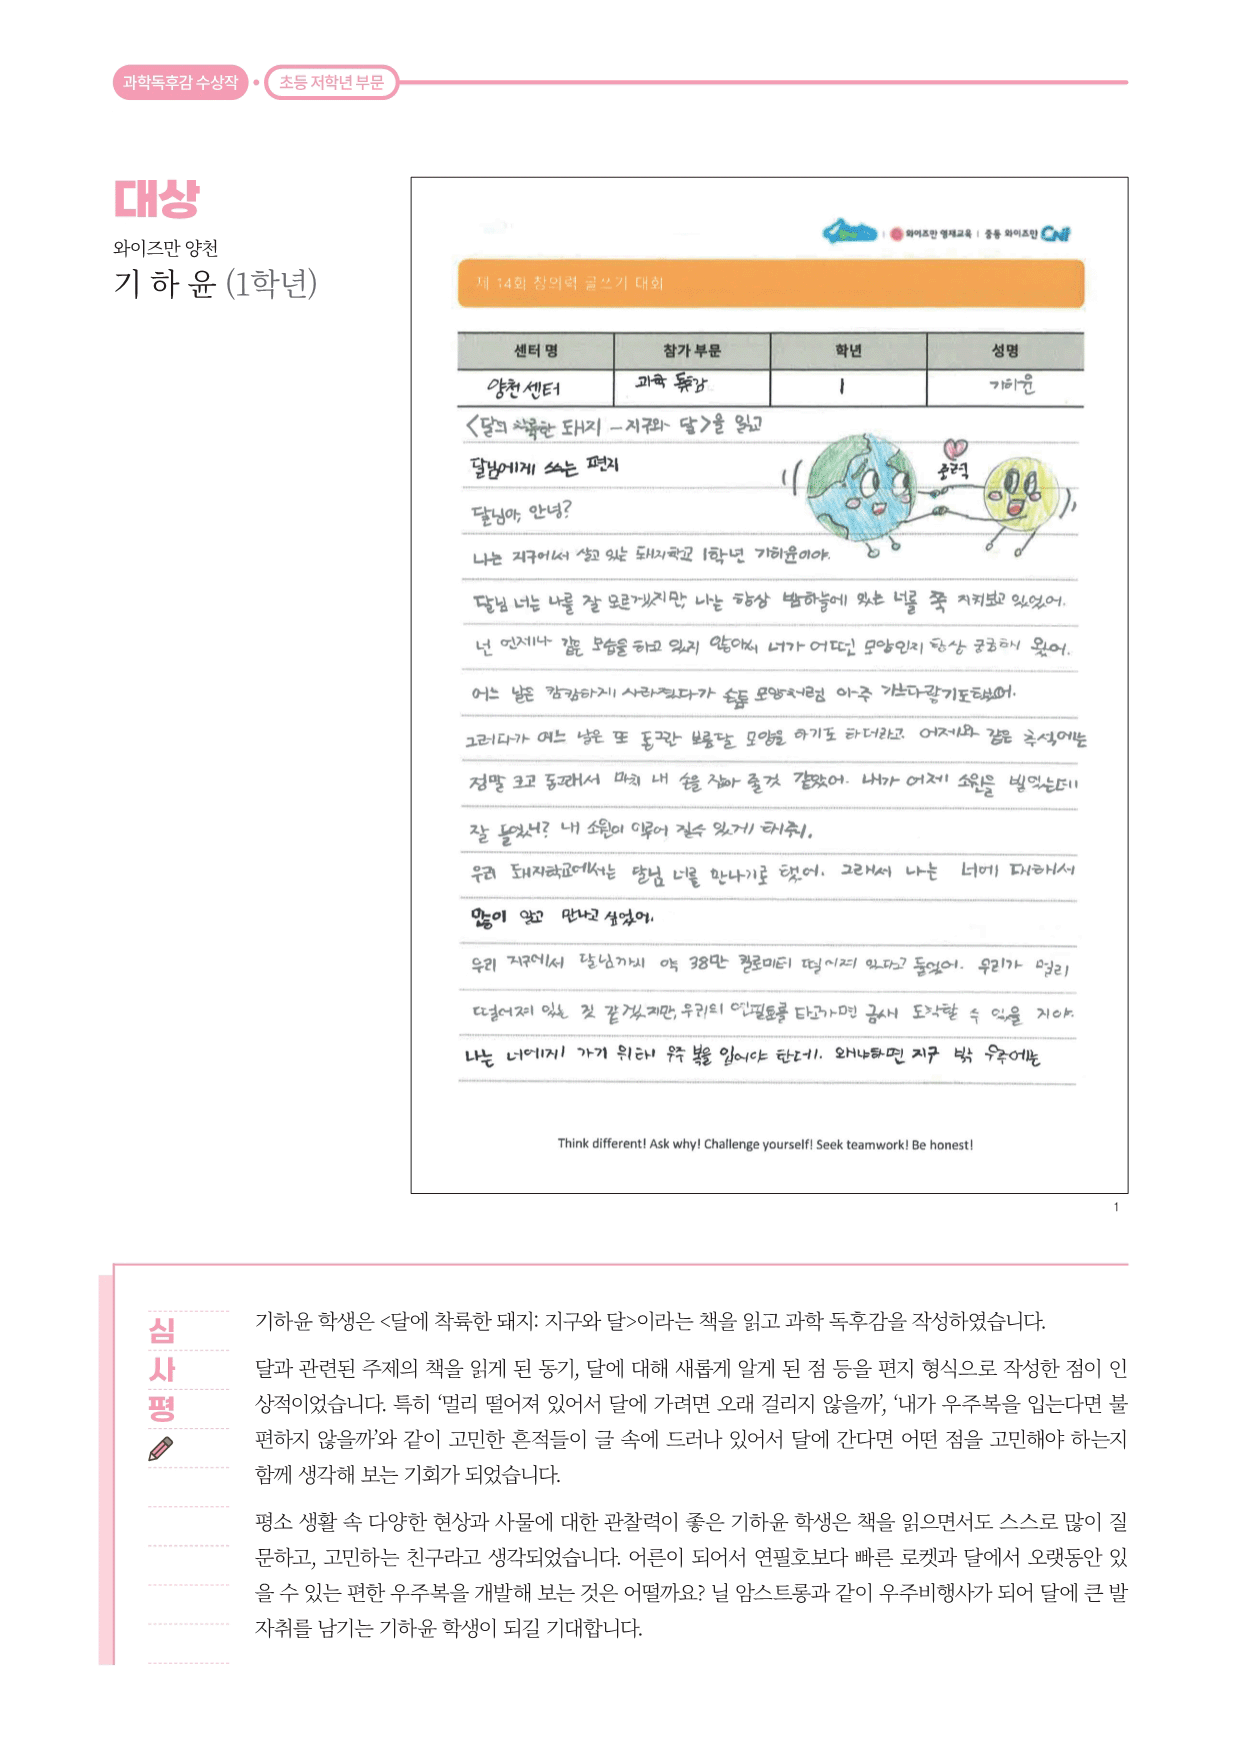 과학독후감 수상작 • 초등 저학년 부문
대상
와이즈만 양천
기 하 윤 (1학년)
와이즈만 영재교육 | 중등 와이즈만 CNI
제 14회 창의력 글쓰기 대회
센터 명 참가 부문 학년 성명
양천센터 과학 독후감 1 기하윤
<달의 착륙한 돼지 - 지구와 달>을 읽고
달님에게 쓰는 편지
중력
달님아, 안녕?
나는 지구에서 살고 있는 돼지학교 1학년 기하윤이야.
달님 너는 나를 잘 모르겠지만, 나는 항상 밤하늘에 있는 너를 쭉 지켜보고 있었어.
넌 언제나 같은 모습을 하고 있지 않아서 너가 어떤 모양인지 항상 궁금해 왔어.
어느 날은 캄캄하게 사라졌다가 손톱 모양처럼 아주 가느다랗기도 했어.
그러다가 어느 날은 또 동그란 보름달 모양을 하기도 하더라고. 어제와 같은 추석에는
정말 크고 동그래서 마치 내 손을 잡아 줄것 같았어. 내가 어제 소원을 빌었는데
잘 들었니? 내 소원이 이루어 질수 있게 해줘.
우리 돼지학교에서는 달님 너를 만나기로 했어. 그래서 나는 너에 대해서
많이 알고 만나고 싶었어.
우리 지구에서 달님까지 약 38만 킬로미터 떨어져 있다고 들었어. 우리가 멀리
떨어져 있는 것 같겠지만, 우리의 연필호를 타고가면 금새 도착할 수 있을 거야.
나는 너에게 가기 위해 우주 복을 입어야 한데. 왜냐하면 지구 밖 우주에는
Think different! Ask why! Challenge yourself! Seek teamwork! Be honest!
1
심
사
평
기하윤 학생은 <달에 착륙한 돼지: 지구와 달>이라는 책을 읽고 과학 독후감을 작성하였습니다.
달과 관련된 주제의 책을 읽게 된 동기, 달에 대해 새롭게 알게 된 점 등을 편지 형식으로 작성한 점이 인
상적이었습니다. 특히 ‘멀리 떨어져 있어서 달에 가려면 오래 걸리지 않을까’, ‘내가 우주복을 입는다면 불
편하지 않을까’와 같이 고민한 흔적들이 글 속에 드러나 있어서 달에 간다면 어떤 점을 고민해야 하는지
함께 생각해 보는 기회가 되었습니다.
평소 생활 속 다양한 현상과 사물에 대한 관찰력이 좋은 기하윤 학생은 책을 읽으면서도 스스로 많이 질
문하고, 고민하는 친구라고 생각되었습니다. 어른이 되어서 연필호보다 빠른 로켓과 달에서 오랫동안 있
을 수 있는 편한 우주복을 개발해 보는 것은 어떨까요? 닐 암스트롱과 같이 우주비행사가 되어 달에 큰 발
자취를 남기는 기하윤 학생이 되길 기대합니다.